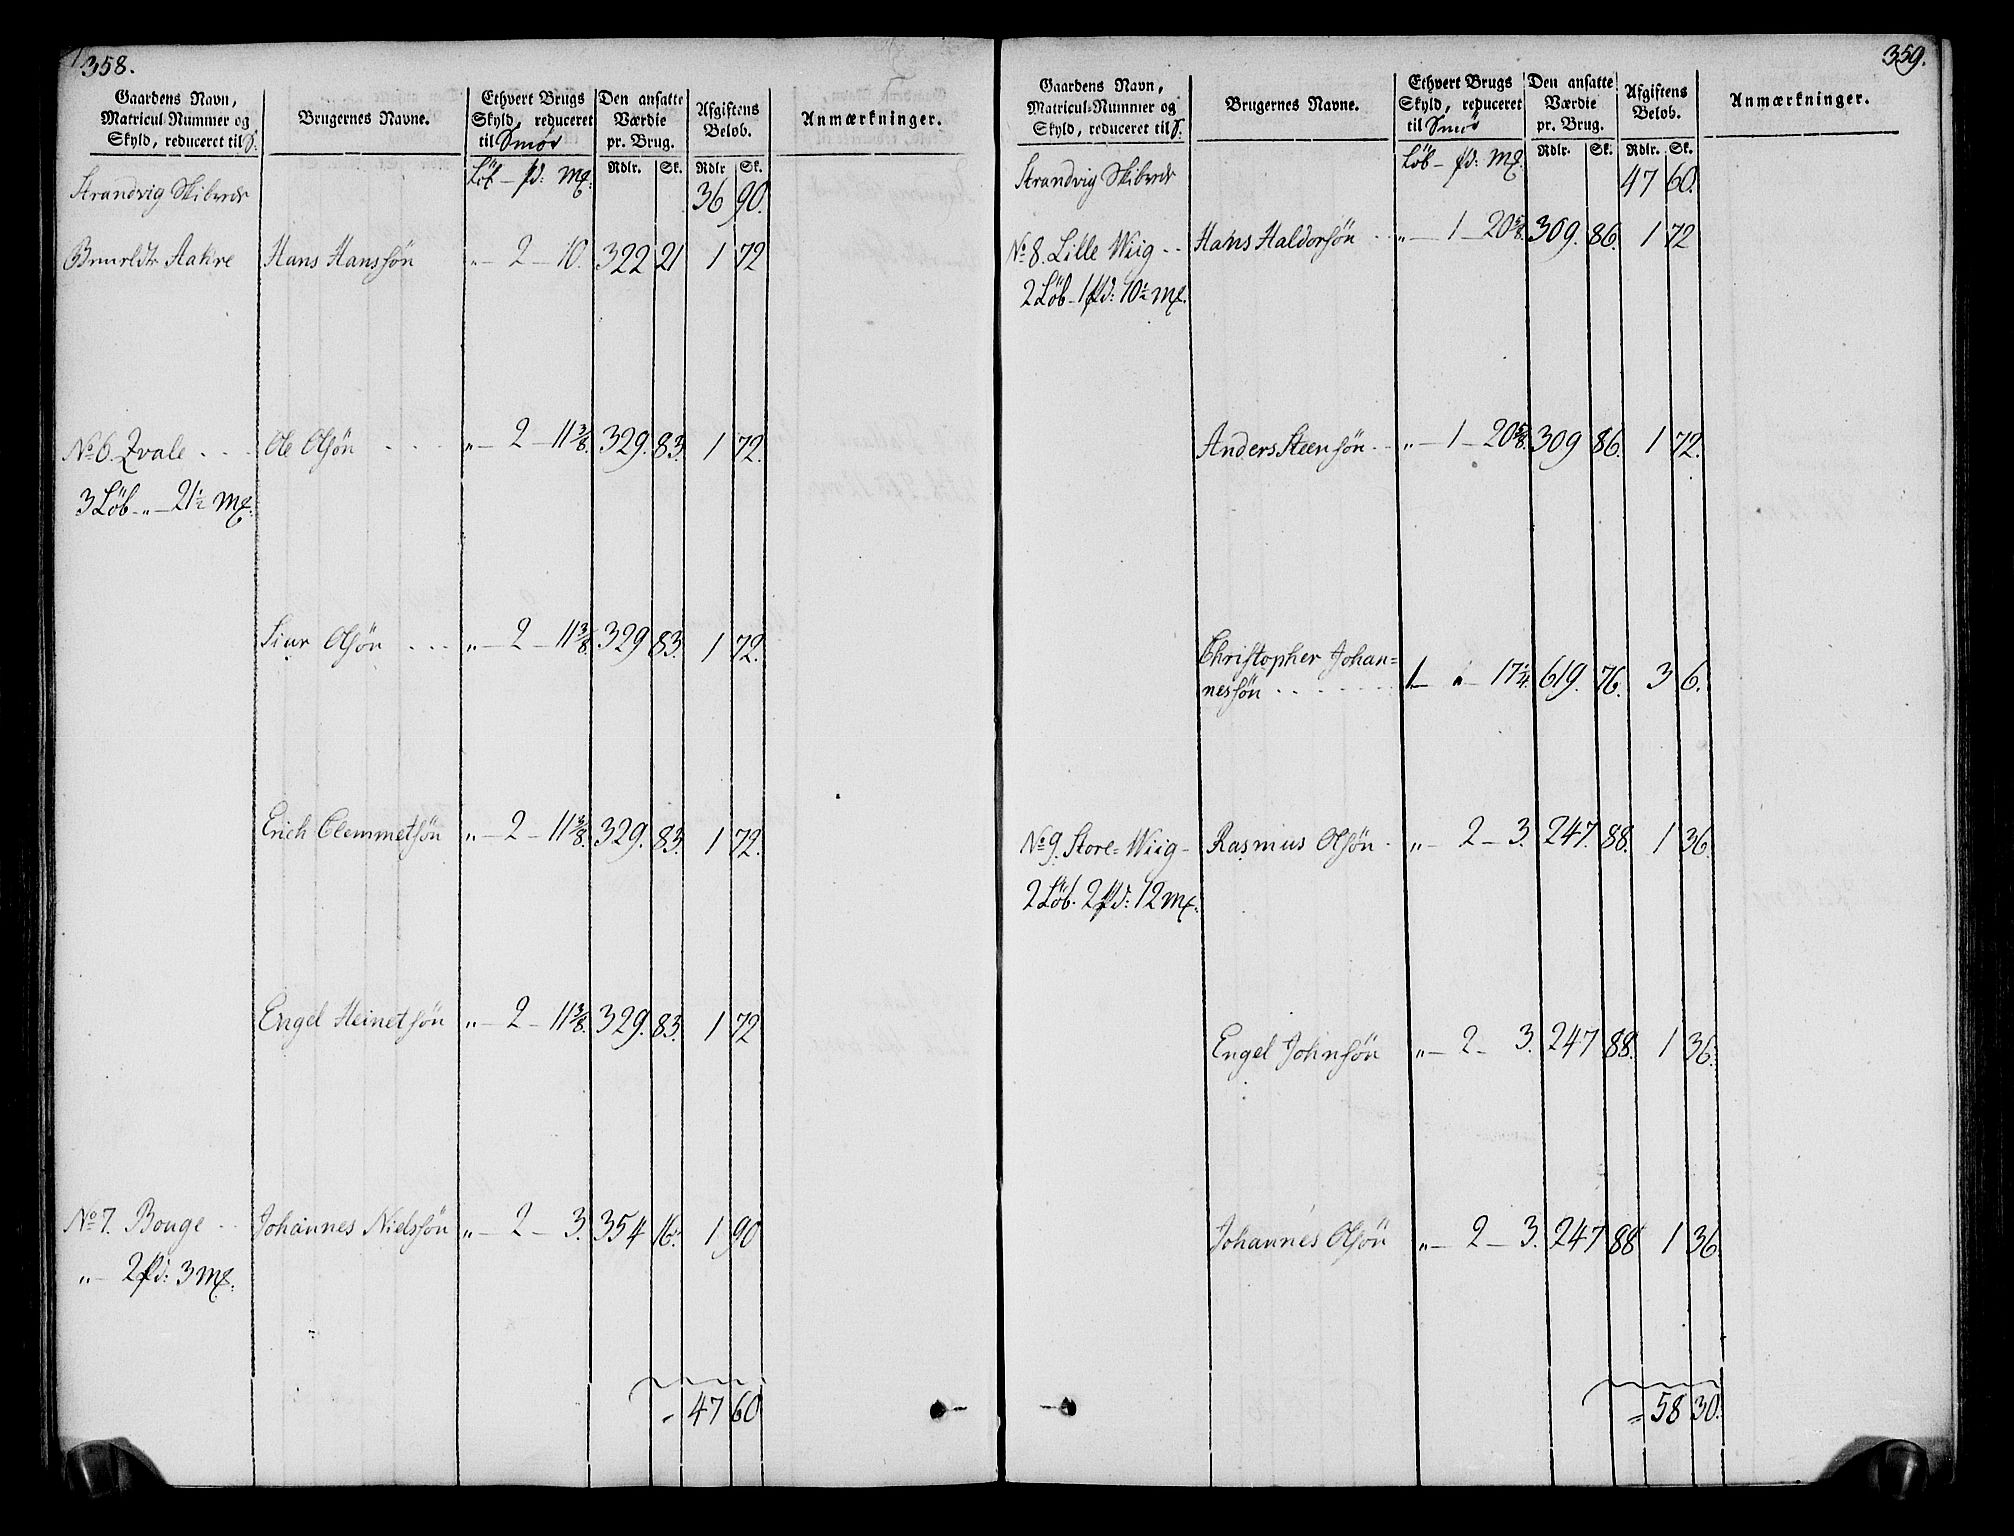 358.
Gaardens Navn, Matricul-Nummer og Skyld, reduceret til S.
Brugernes Navne.
Ethvert Brugs Skyld, reduceret til Smör
Den ansatte Værdie pr. Brug.
Afgiftens Belöb.
Anmærkninger.
Löb – pd: Mg: Rdlr. Sk. Rdlr Sk.
Strandvig Skibrede 36 90.
Aakre Hans Hansön „ – 2 – 10. 322 21 1 72
No 6. Qvale . . . Ole Olsön . . . „ – 2 – 11 3/8. 329. 83. 1 72.
3 Löb „ – 21 1/2 Mg.
Siur Olsön . . . „ – 2 – 11 3/8. 329 83. 1 72.
Erich Clemmetsön „ – 2 – 11 3/8. 329. 83. 1 72.
Engel Heinetsön „ – 2 – 11 3/8. 329. 83. 1 72
No 7. Bouge . . Johannes Nielssön „ – 2 – 3. 354 16. 1 90
„ – 2 pd: 3 Mg.
= 47 60
359.
Gaardens Navn, Matricul-Nummer og Skyld, reduceret til S.
Brugernes Navne.
Ethvert Brugs Skyld, reduceret til Smör
Den ansatte Værdie pr. Brug.
Afgiftens Belöb.
Anmærkninger.
Löb – pd: Mg Rdlr. Sk. Rdlr. Sk.
Strandvig Skibrede 47 60.
No 8. Lille Wiig . . Hans Haldorsön . . „ – 1 – 20 5/8. 309. 86. 1 72
2 Löb – 1 pd: 10 1/2 Mg.
Anders Steensön . . „ – 1 – 20 5/8. 309 86. 1 72.
Christopher Johan=
nessön . . . . . . 1 – „ – 17 1/4. 619. 76. 3 6.
No 9. Store=Wiig – Rasmus Olsön . „ – 2 – 3. 247. 88. 1 36.
2 Löb. 2 pd: 12 Mg.
Engel Johnsön „ – 2 – 3. 247 88. 1 36.
Johannes Olsön „ – 2 – 3. 247 88 1 36.
= 58 30.